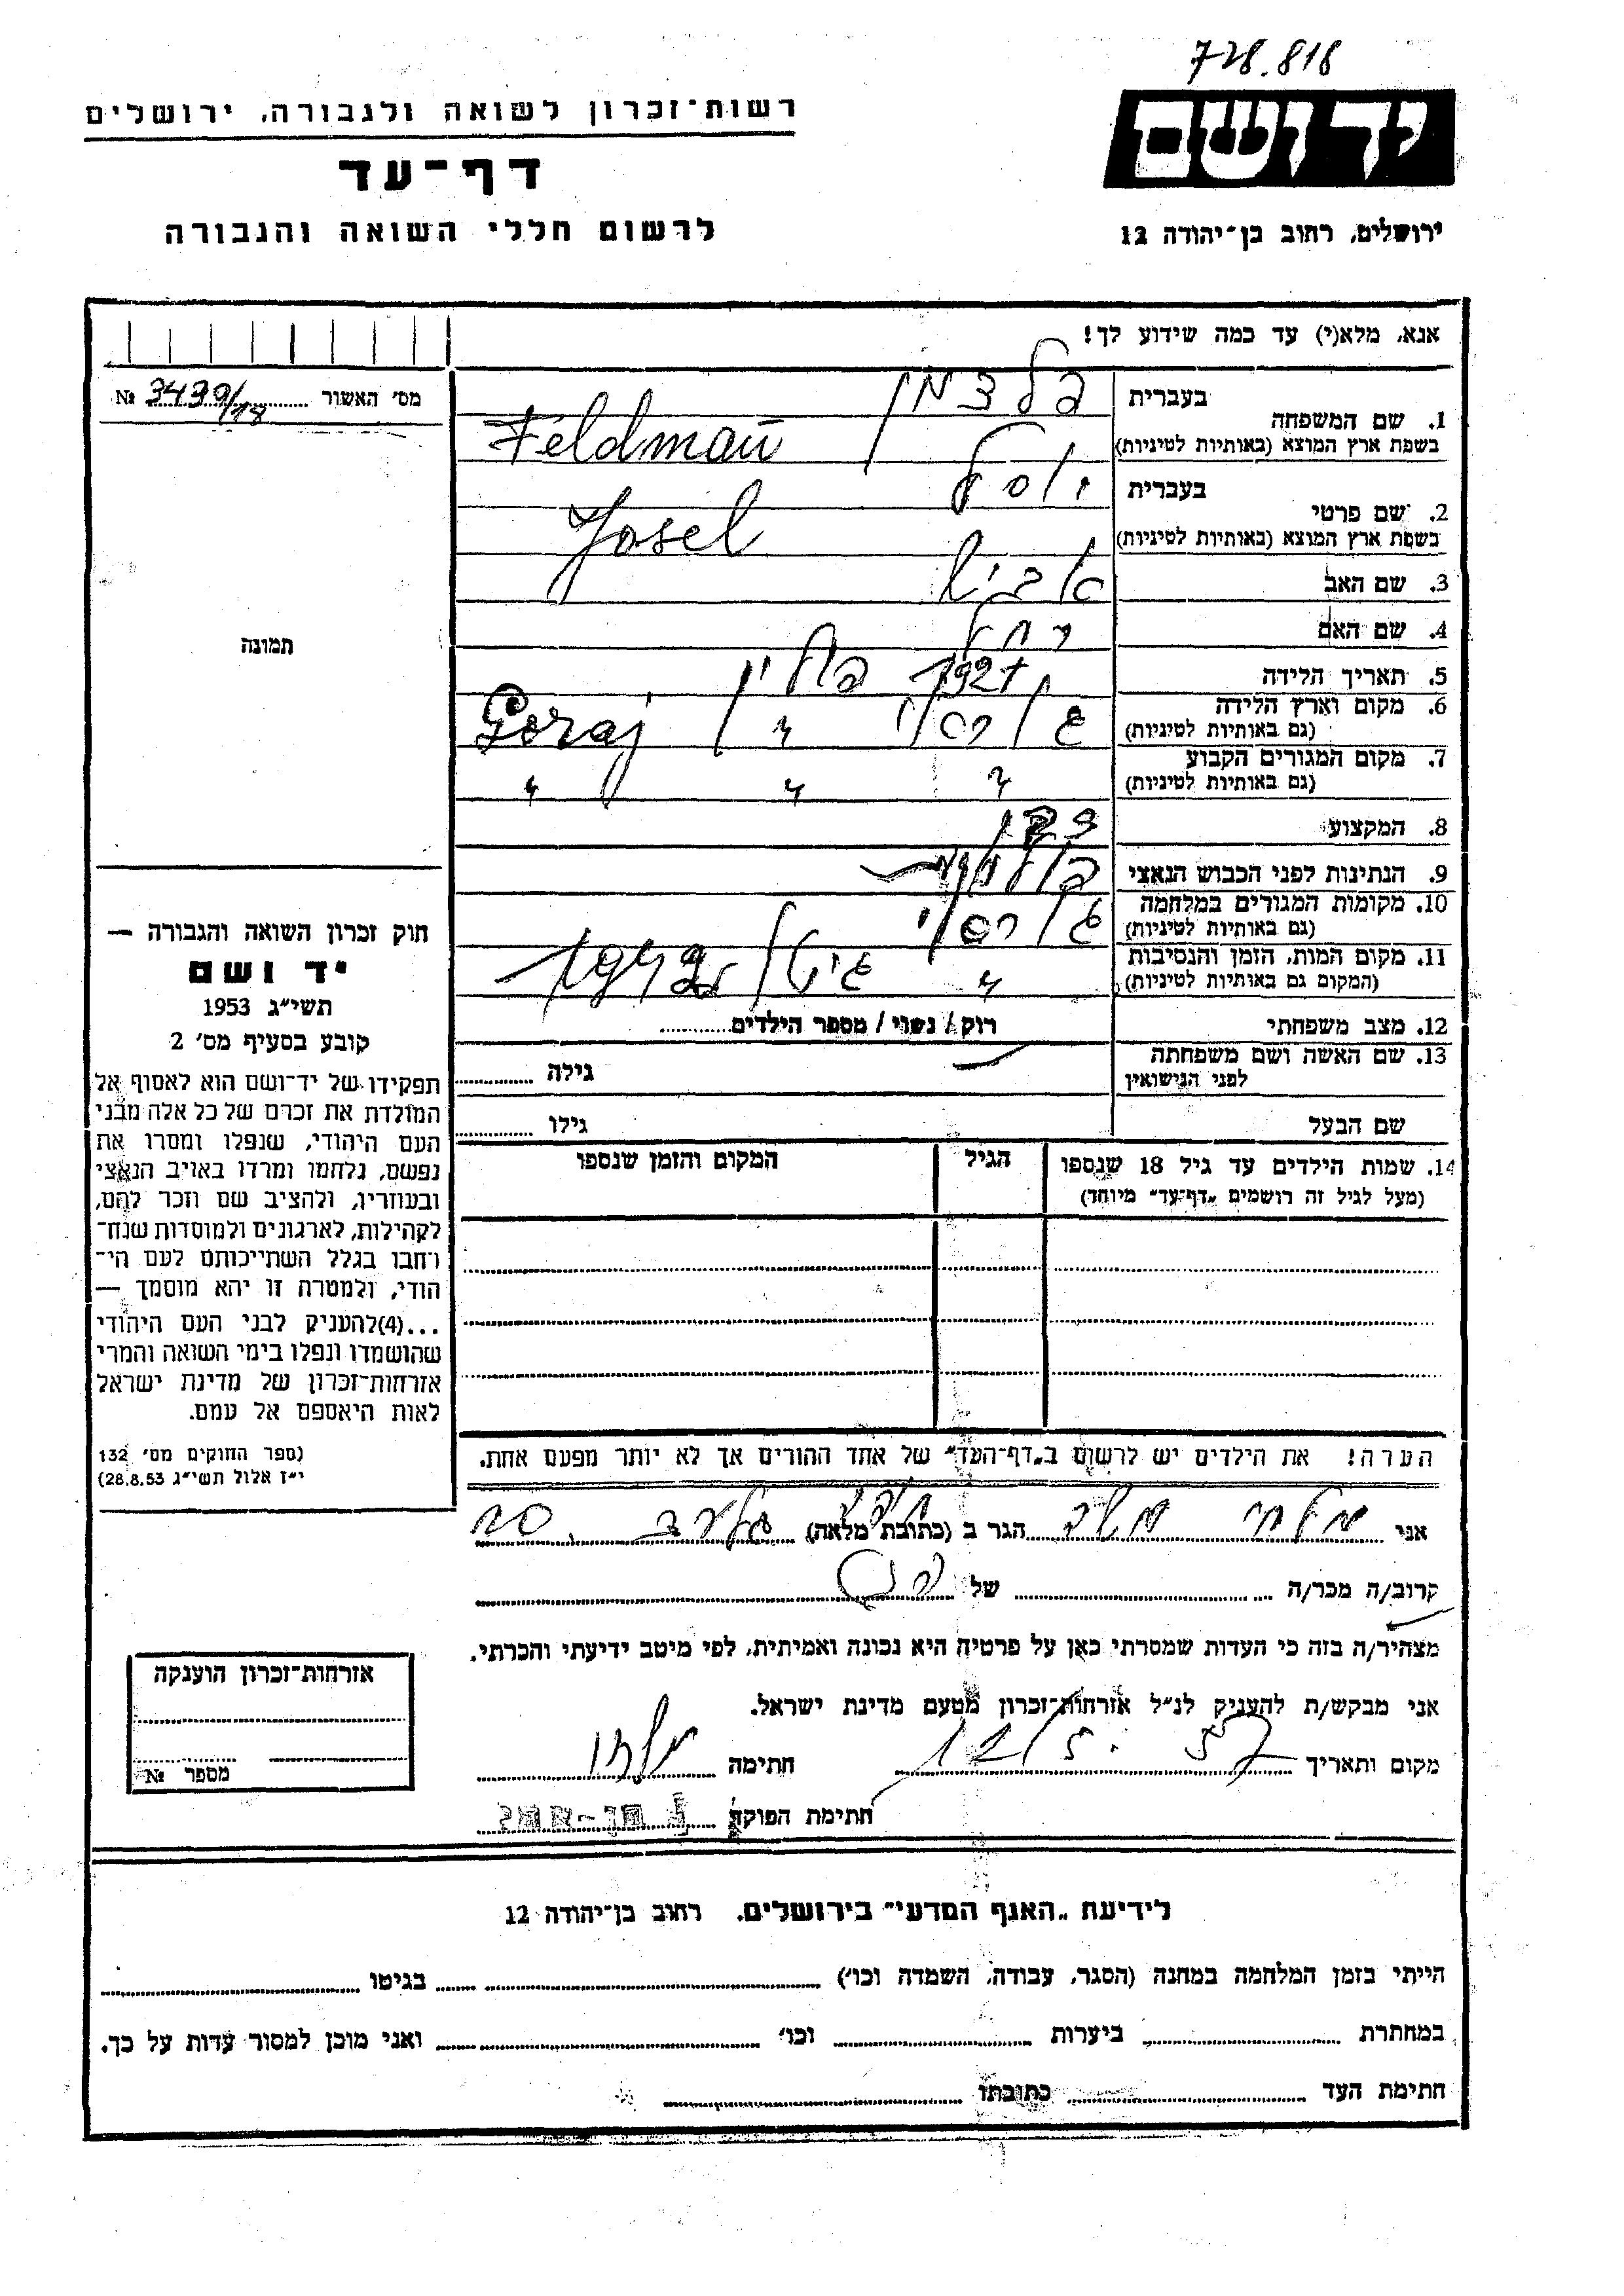 728.818
יד ושם
רשות־זכרון לשואה ולגבורה, ירושלים
דף־עד
לרשום חללי השואה והגבורה
ירושלים, רחוב בן־יהודה 12
אנא, מלא(י) עד כמה שידוע לך!
מס׳ האשור № 3439/18
תמונה
בעברית פלדמן
1. שם המשפחה
בשפת ארץ המוצא (באותיות לטיניות) Feldman
בעברית יוסל
2. שם פרטי
בשפת ארץ המוצא (באותיות לטיניות) Josel
3. שם האב
4. שם האם רחל
5. תאריך הלידה 1927 פולין
6. מקום וארץ הלידה Goraj
(גם באותיות לטיניות)
7. מקום המגורים הקבוע
(גם באותיות לטיניות) " " "
8. המקצוע
9. הנתינות לפני הכבוש הנאצי
10. מקומות המגורים במלחמה
(גם באותיות לטיניות)
11. מקום המות, הזמן והנסיבות
(המקום גם באותיות לטיניות) " 1942
12. מצב משפחתי רוק / נשוי / מספר הילדים
13. שם האשה ושם משפחתה
לפני הנישואין גילה
שם הבעל גילו
14. שמות הילדים עד גיל 18 שנספו הגיל המקום והזמן שנספו
(מעל לגיל זה רושמים „דף־עד״ מיוחד)
הערה! את הילדים יש לרשום ב„דף־העד״ של אחד ההורים אך לא יותר מפעם אחת.
חוק זכרון השואה והגבורה —
יד ושם
תשי״ג 1953
קובע בסעיף מס׳ 2
תפקידו של יד־ושם הוא לאסוף אל
המולדת את זכרם של כל אלה מבני
העם היהודי, שנפלו ומסרו את
נפשם, נלחמו ומרדו באויב הנאצי
ובעוזריו, ולהציב שם וזכר להם,
לקהילות, לארגונים ולמוסדות שנח־
רחבו בגלל השתייכותם לעם הי־
הודי, ולמטרה זו יהא מוסמך —
...(4)להעניק לבני העם היהודי
שהושמדו ונפלו בימי השואה והמרי
אזרחות־זכרון של מדינת ישראל
לאות היאספם אל עמם.
(ספר החוקים מס׳ 132
י״ז אלול תשי״ג 28.8.53)
אני הגר ב (כתובת מלאה)
קרוב/ה מכר/ה של
מצהיר/ה בזה כי העדות שמסרתי כאן על פרטיה היא נכונה ואמיתית, לפי מיטב ידיעתי והכרתי.
אני מבקש/ת להעניק לנ״ל אזרחות־זכרון מטעם מדינת ישראל.
מקום ותאריך 12/5. 57 חתימה
חתימת הפוקד
אזרחות־זכרון הוענקה
מספר №
לידיעת „האגף המדעי״ בירושלים, רחוב בן־יהודה 12
הייתי בזמן המלחמה במחנה (הסגר, עבודה, השמדה וכו׳) בגיטו
במחתרת ביערות וכו׳ ואני מוכן למסור עדות על כך.
חתימת העד כתובתו